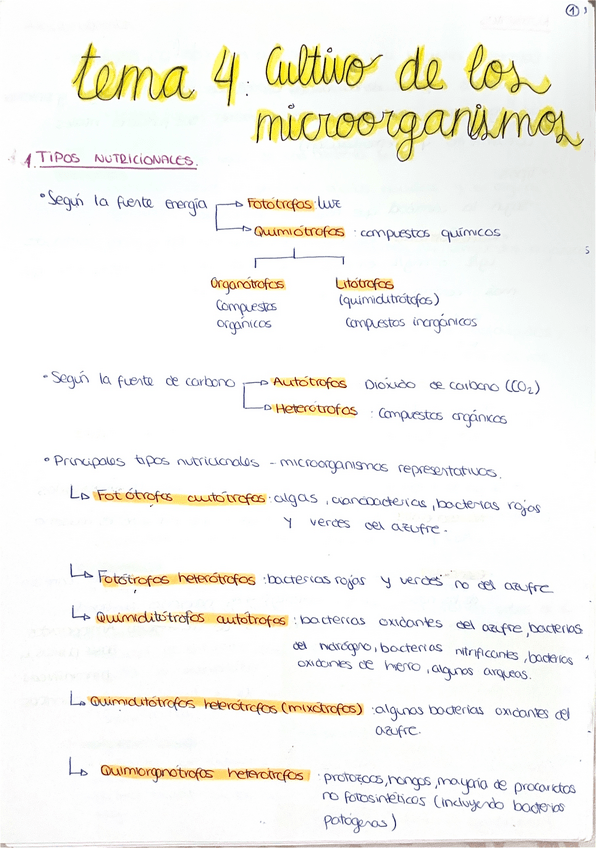 1
tema 4: Cultivo de los
microorganismos
1. TIPOS NUTRICIONALES.
• Según la fuente energía → Fotótrofos: luz
→ Quimiótrofos: compuestos químicos
Organótrofos Litótrofos
Compuestos (quimiolitótrofos)
orgánicos compuestos inorgánicos
• Según la fuente de carbono → Autótrofos Dióxido de carbono (CO2)
→ Heterótrofos: Compuestos orgánicos
• Principales tipos nutricionales - microorganismos representativos.
↳ Fotótrofos autótrofos: algas, cianobacterias, bacterias rojas
y verdes del azufre.
↳ Fotótrofos heterótrofos: bacterias rojas y verdes no del azufre
↳ Quimiolitótrofos autótrofos: bacterias oxidantes del azufre, bacterias
del hidrógeno, bacterias nitrificantes, bacterias
oxidantes de hierro, algunos arqueas.
↳ Quimiolitótrofos heterótrofos (mixótrofos): algunas bacterias oxidantes del
azufre.
↳ Quimiorganótrofos heterótrofos: protozoos, hongos, mayoría de procariotas
no fotosintéticos (incluyendo bacterias
patógenas)